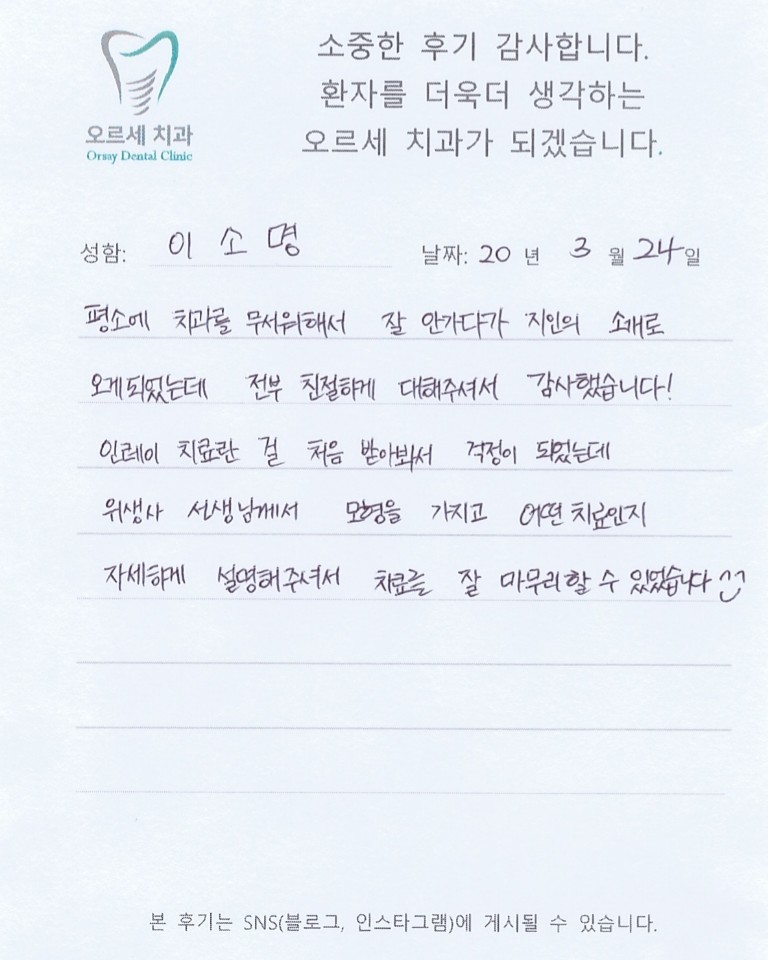 오르세 치과
Orsay Dental Clinic
소중한 후기 감사합니다.
환자를 더욱더 생각하는
오르세 치과가 되겠습니다.
성함: 이소명
날짜: 20년 3월 24일
평소에 치과를 무서워해서 잘 안가다가 지인의 소개로
오게되었는데 전부 친절하게 대해주셔서 감사했습니다!
인레이 치료란 걸 처음 받아봐서 걱정이 되었는데
위생사 선생님께서 모형을 가지고 어떤 치료인지
자세하게 설명해주셔서 치료를 잘 마무리할 수 있었습니다
본 후기는 SNS(블로그, 인스타그램)에 게시될 수 있습니다.